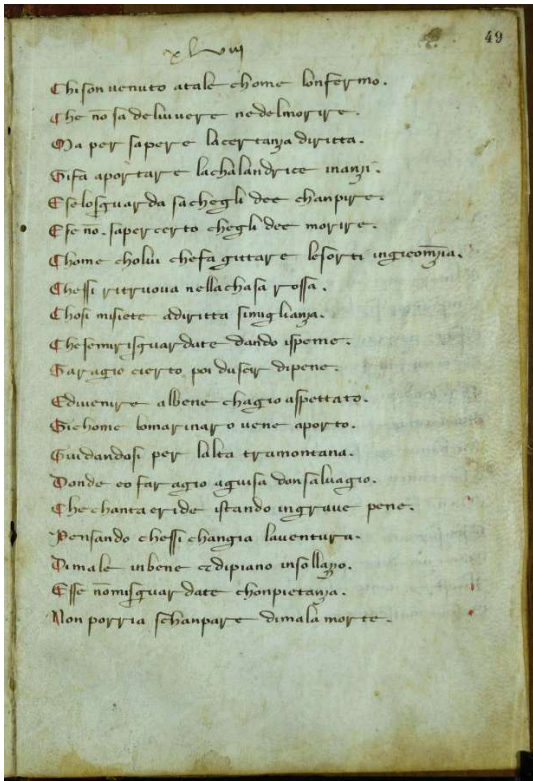 xlviij
49
Chison venuto atale chome lonfermo.
Che nō sa deluivere nedelmorire.
Ma per sapere lacertanza diritta.
Sifa aportare lachalandrice inanzi.
Eselosguarda sachegli dee chanpire.
Ese nō. saper certo chegli dee morire.
Chome cholui chefa gittare lesorti ingieomēzia.
Chessi ritruova nella chasa rossa.
Chosi misiete adiritta simiglianza.
Chesemisguardate dando isspeme.
Saragio cierto poi duscir dipene.
Edivenire albene chagio aspettato.
Siehome lomarinaro vene aporto.
Guidandosi per lalta tramontana.
Donde eo faragio aguisa donsalvagio.
Che chanta eride istando ingrave pene.
Pensando chessi changia laventura.
Dimale inbene & dipiano insollazo.
Esse nōmisguardate chonpietanza.
Non porria schanpare dimala morte.